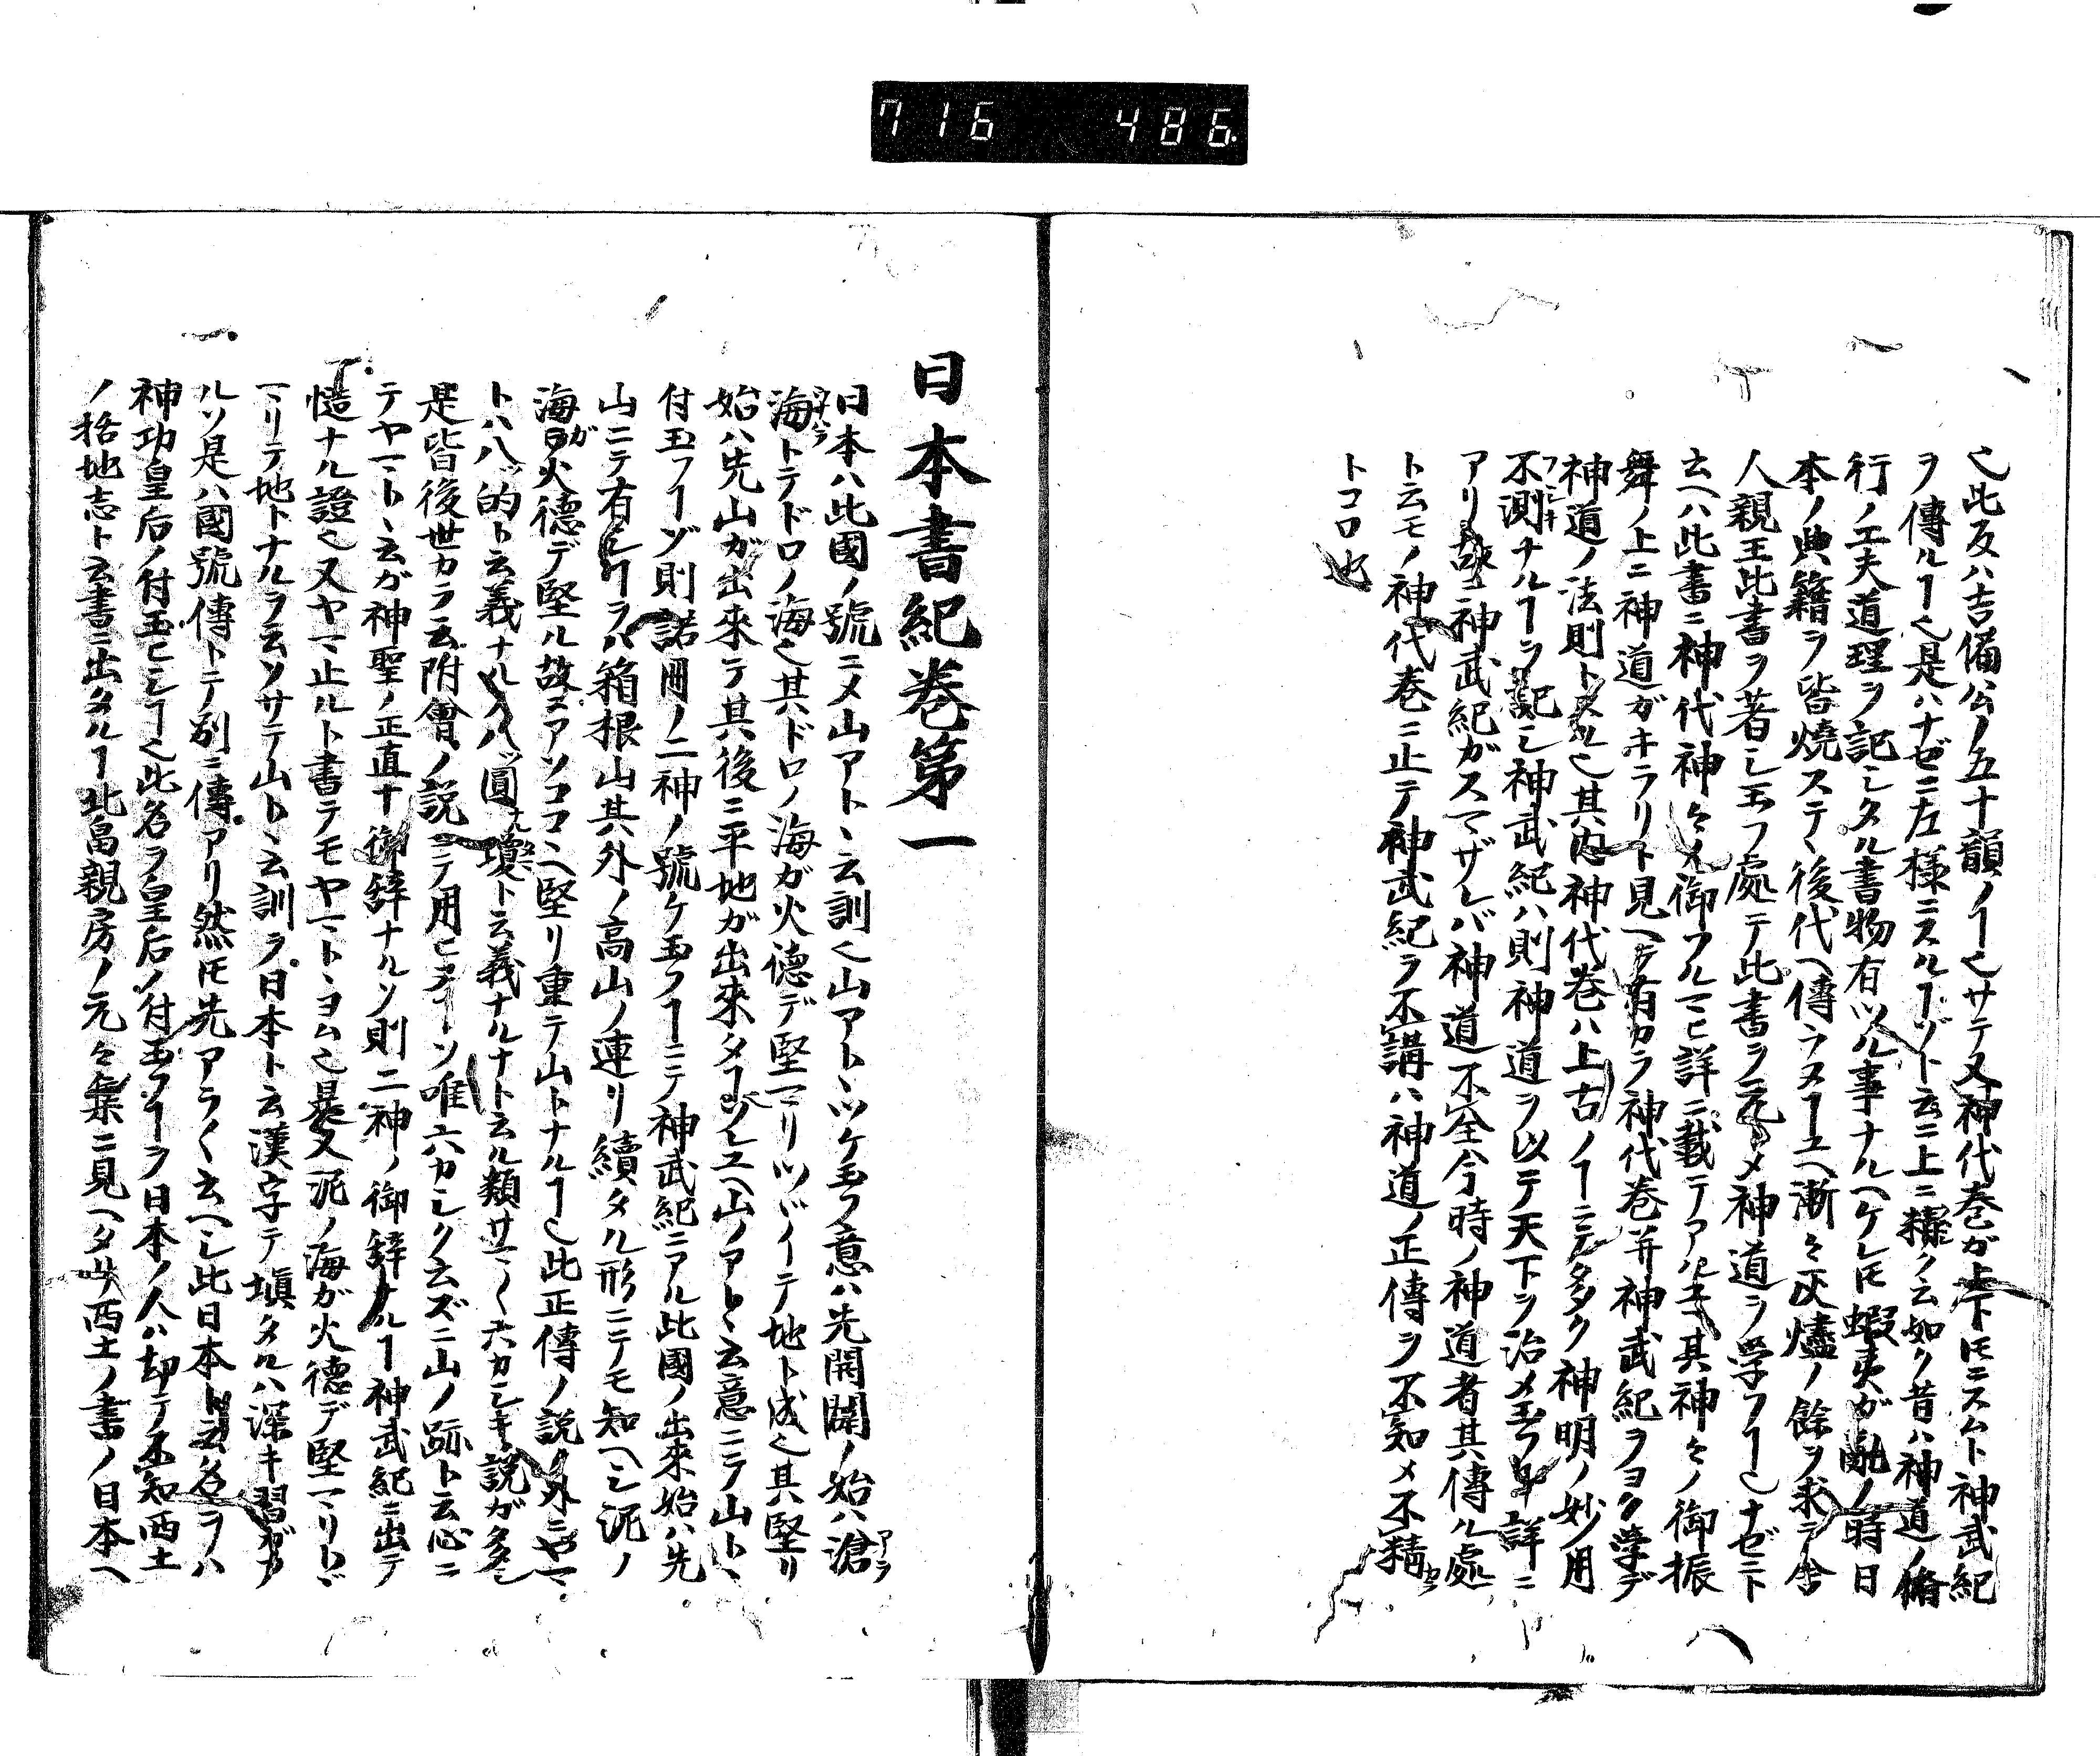 716 486
也此反ハ吉備公ノ五十韻ノヿ也サテ又神代巻ガ上下𪜈ニスムト神武紀
ヲ傳ルヿ也是ハナゼニ左様ニスルヿゾト云ニ上ニ精ク云如ク昔ハ神道ノ脩
行ノ工夫道理ヲ記シタル書物有ツル事ナルヘケレ𪜈蝦夷ガ乱ノ時日
本ノ典籍ヲ皆焼ステヽ後代ヘ傳ラヌヿユヘ漸々灰燼ノ餘ヲ求テ舎
人親王比書ヲ著シ玉フ處テ此書ヲ元トメ神道ヲ学フヿ也ナゼニト
云ヘハ此書ニ神代神々ノ御フルマヒ詳ニ載テアルユヘ其神々ノ御振
舞ノ上ニ神道ガキラリト見ヘテ有カラ神代巻并神武紀ヲヨク学デ
神道ノ法則トスル也其内神代巻ハ上古ノヿニテ多ク神明ノ妙用
不測ナルヿヲ記シ神武紀ハ則神道ヲ以テ天下ヲ治メ玉フヿ詳ニ
アリ故ニ神武紀ガスマザレバ神道不全今時ノ神道者其傳ル處
ト云モノ神代巻ニ止テ神武紀ヲ不講ハ神道ノ正傳ヲ不知メ不精
トコロ也
日本書紀巻第一
日本ハ此國ノ號ニメ山アトヽ云訓也山アトヽツケ玉フ意ハ先開闢ノ始ハ滄
海トテドロノ海也其ドロノ海ガ火徳デ堅マリツヾイテ地ト成也其堅リ
始ハ先山ガ出來テ其後ニ平地ガ出來タヿゾユヘ山ノアトヽ云意ニテ山トヽ
付玉フヿゾ則諾冊ノ二神ノ號ケ玉フヿニテ神武紀ニアル此國ノ出來始ハ先
山ニテ有シヿヲハ箱根山其外ノ高山ノ連リ續タル形ニテモ知ヘシ泥ノ
海ガ日火徳デ堅ル故アソココヽヘ堅リ重テ山トナルヿ也此正傳ノ説ノ外ニヤマ
トハ八的ト云義ナルノ八圓瓊ト云義ナルナト云ル類サマ〱六カシキ説ガ多シ
是皆後世カラ云附會ノ説ニテ用ヒヌヿソ唯六カシク云ズニ山ノ跡ト云心ニ
テヤマトヽ云ガ神聖ノ正直ナ御辞ナルソ則二神ノ御辞ナルヿ神武紀ニ出テ
慥ナル證也又ヤマ止ルト書テモヤマトヽヨム也是又泥ノ海ガ火徳デ堅マリトヾ
マリテ地トナルヲ云ソサテ山トヽ云訓ヲ日本ト云漢字テ塡タルハ深キ習ガア
ルソ是ハ國號傳トテ別ニ傳アリ然𪜈先アラ〱云ヘシ此日本ト云名ヲハ
神功皇后ノ付玉ヒシヿ也此名ヲ皇后ノ付玉フヿヲ日本ノ人ハ却テ不知西土
ノ括地志ト云書ニ出タルヿ北畠親房ノ元々集ニ見ヘタリ西土ノ書ノ日本ヘ